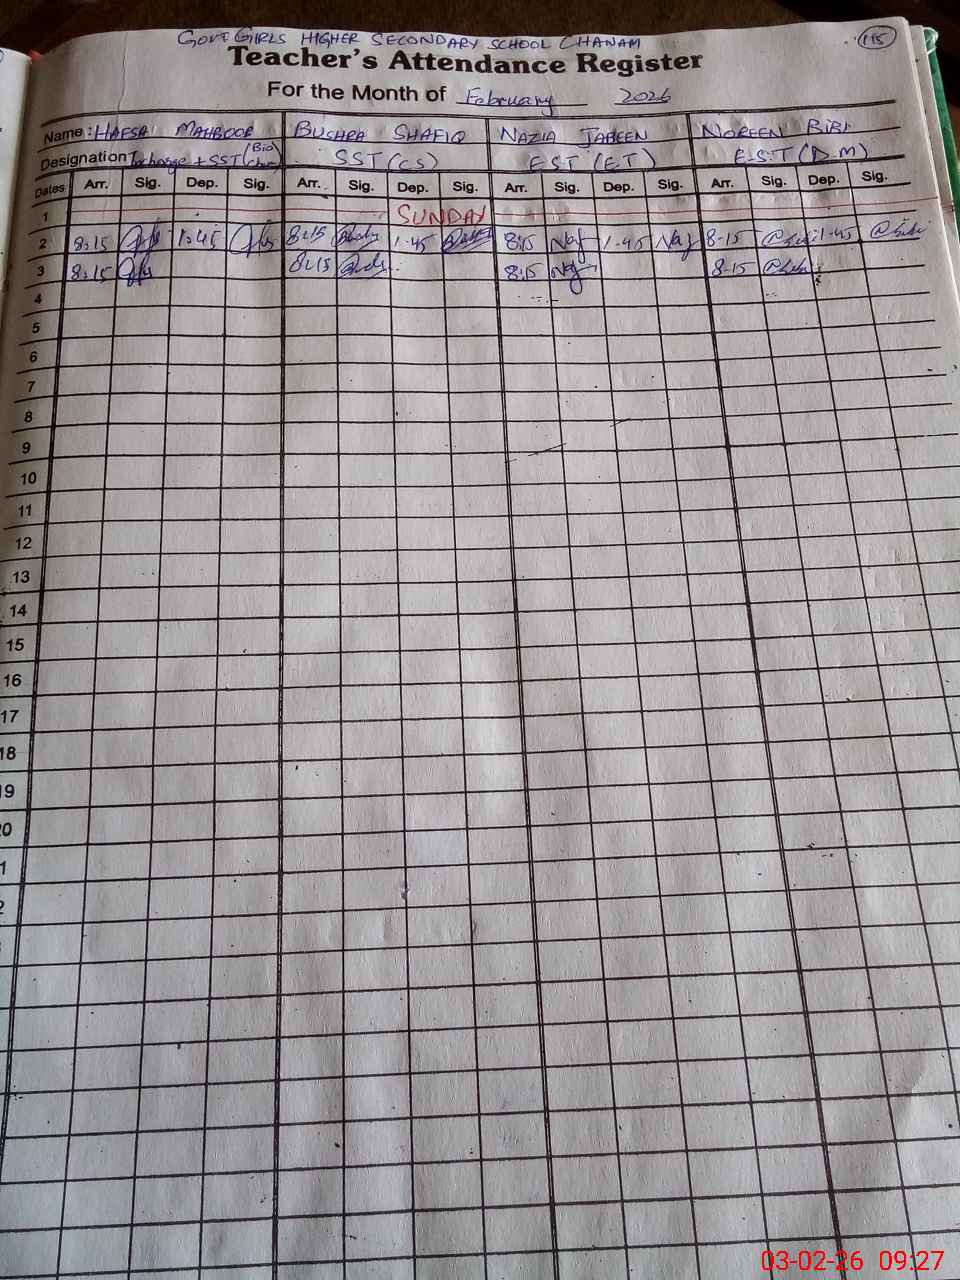 GOVT GIRLS HIGHER SECONDARY SCHOOL CHANAM 115
Teacher's Attendance Register
For the Month of February 2026
Name: HAFSA MAHBOOB BUSHRA SHAFIQ NAZIA JABEEN NOREEN BIBI
Designation Incharge + SST (Bio Chem) SST (CS) EST (ET) E.S.T (D.M)
Dates Arr. Sig. Dep. Sig. Arr. Sig. Dep. Sig. Arr. Sig. Dep. Sig. Arr. Sig. Dep. Sig.
1 SUNDAY
2 8:15 1:45 8:15 1-45 8:15 Naz 1-45 Naz 8-15 1-45
3 8:15 8:15 8:15 Naz 8-15
4
5
6
7
8
9
10
11
12
13
14
15
16
17
18
19
20
1
2
03-02-26 09:27